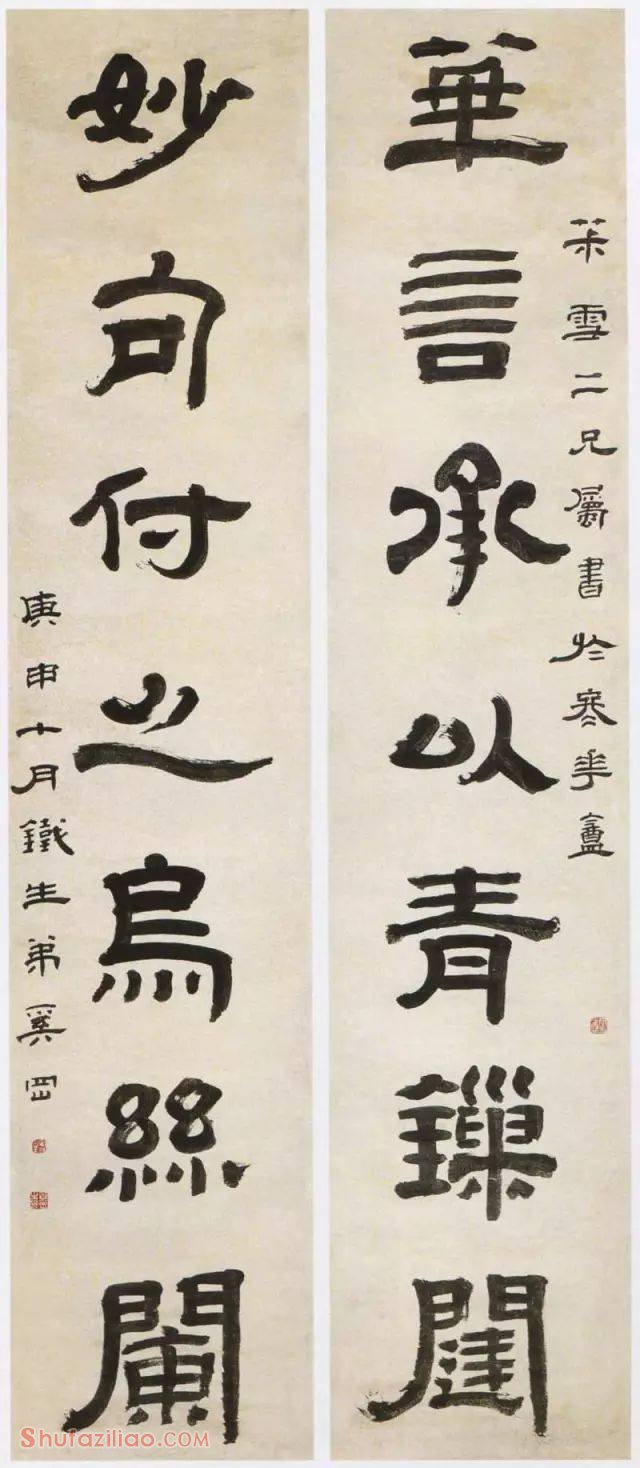 華言承以青鏁闥
雪二兄屬書於冬華盦
妙句付之烏絲闌
庚申十月鐵生弟奚岡
Shufaziliao.com